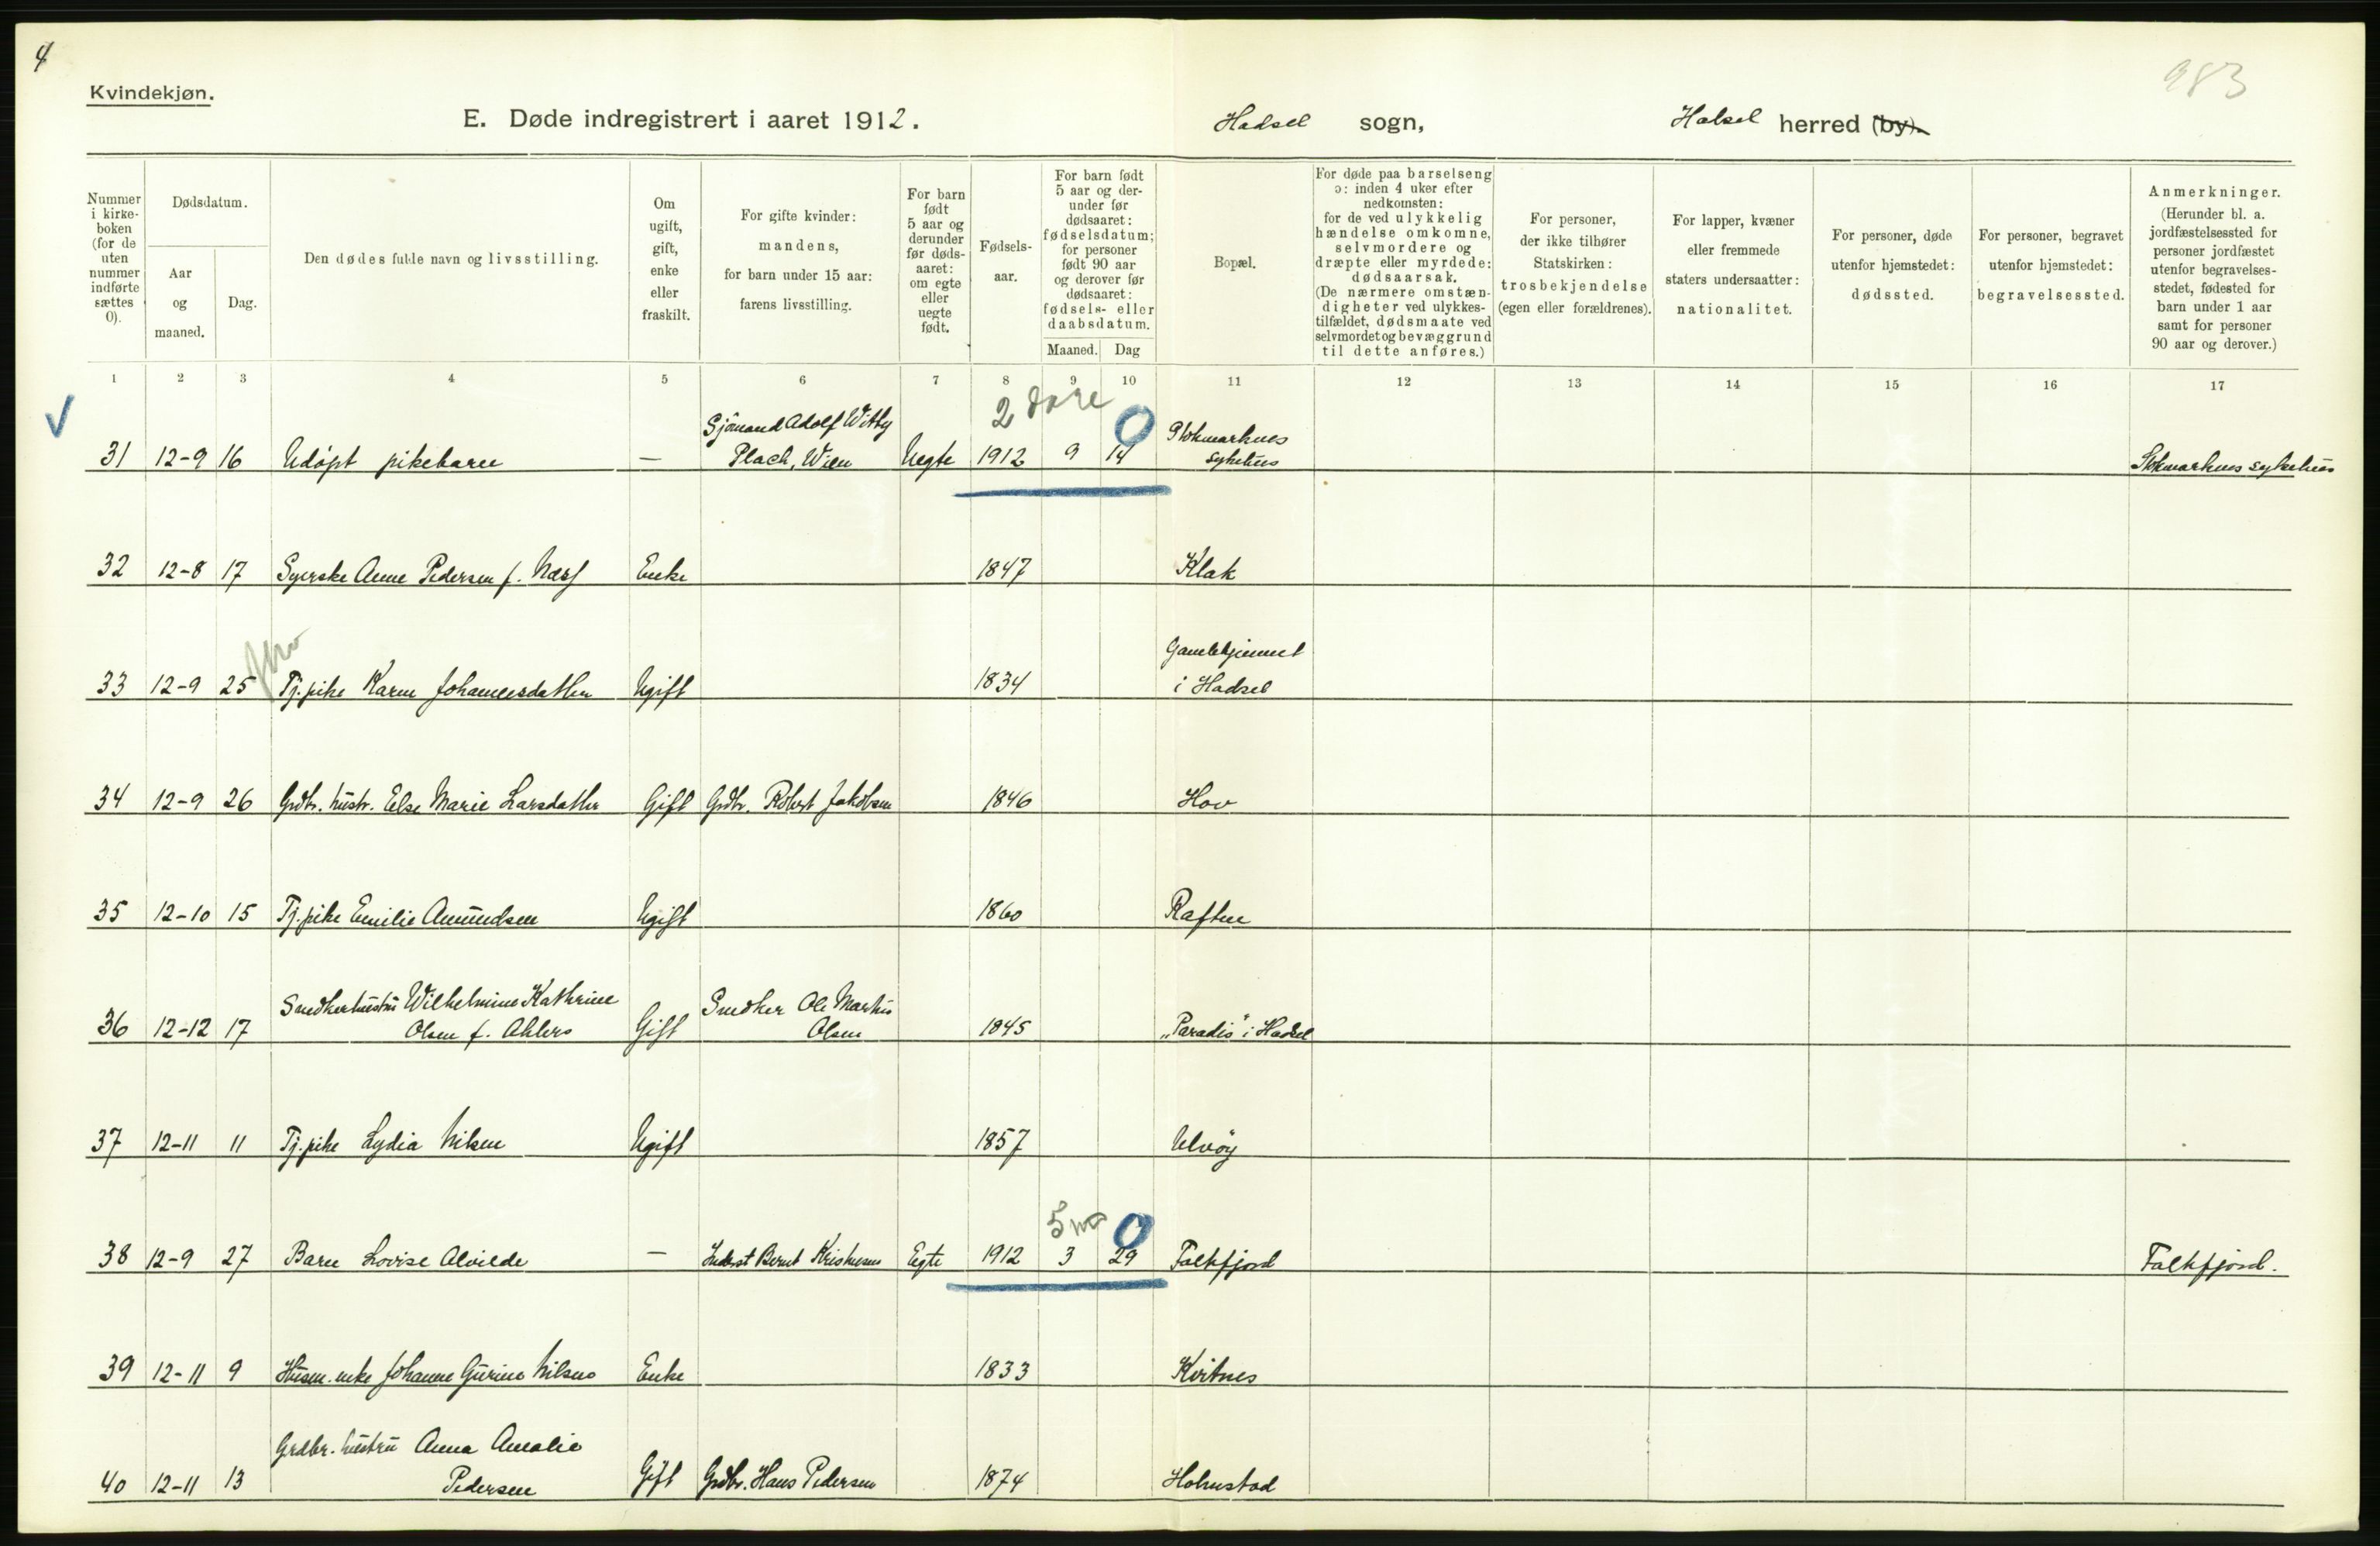 4
983
Kvindekjøn.
E. Døde indregistrert i aaret 1912. Hadsel sogn, Halsel herred (by).
Nummer i kirke- boken (for de uten nummer indførte sættes 0).
Dødsdatum.
Aar og maaned.
Dag.
Den dødes fulde navn og livsstilling.
Om ugift, gift, enke eller fraskilt.
For gifte kvinder: mandens, for barn under 15 aar: farens livsstilling.
For barn født 5 aar og derunder før døds- aaret: om egte eller uegte født.
Fødsels- aar.
For barn født 5 aar og der- under før dødsaaret: fødselsdatum; for personer født 90 aar og derover før dødsaaret: fødsels- eller daabsdatum.
Maaned. Dag
Bopæl.
For døde paa barselseng ɔ: inden 4 uker efter nedkomsten: for de ved ulykkelig hændelse omkomne, selvmordere og dræpte eller myrdede: dødsaarsak. (De nærmere omstæn- digheter ved ulykkes- tilfældet, dødsmaate ved selvmordet og bevæggrund til dette anføres.)
For personer, der ikke tilhører Statskirken: trosbekjendelse (egen eller forældrenes).
For lapper, kvæner eller fremmede staters undersaatter: nationalitet.
For personer, døde utenfor hjemstedet: dødssted.
For personer, begravet utenfor hjemstedet: begravelsessted.
Anmerkninger. (Herunder bl. a. jordfæstelsessted for personer jordfæstet utenfor begravelses- stedet, fødested for barn under 1 aar samt for personer 90 aar og derover.)
1 2 3 4 5 6 7 8 9 10 11 12 13 14 15 16 17
2 0
Sjömand Adolf Stokmarknes
31 12-9 16 Udöpt pikebarn — Plach, Wien Uegte 1912 9 14 sykehus Stokmarknes sykehus
32 12-8 17 Syerske Anne Pedersen f. Næss Enke 1847 Klak
Gamlehjemmet
33 12-9 25 Tj.pike Karen Johannesdatter Ugift 1834 i Hadsel
34 12-9 26 Grdbr. hustr. Else Marie Larsdatter Gift Grdbr. Robert Jakobsen 1846 Hov
35 12-10 15 Tj.pike Emilie Amundsen Ugift 1860 Raften
Snedkerhustru Wilhelmine Kathrine Snedker Ole Martin
36 12-12 17 Olsen f. Ahlers Gift Olsen 1845 „Paradis" i Hadsel
37 12-11 11 Tj.pike Lydia Nilsen Ugift 1857 Ulvöy
5 0
38 12-9 27 Barn Lovise Alvilde — Inderst Bernt Kristensen Egte 1912 3 29 Falkfjord Falkfjord.
39 12-11 9 Husm. enke Johanne Gurine Nilsen Enke 1833 Kvitnes
Grdbr. hustru Anna Amalie
40 12-11 13 Pedersen Gift Grdbr. Hans Pedersen 1874 Holmstad